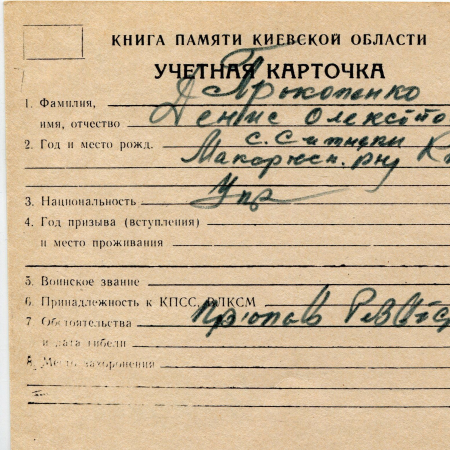 КНИГА ПАМЯТИ КИЕВСКОЙ ОБЛАСТИ
УЧЕТНАЯ КАРТОЧКА
1. Фамилия, Прокопенко
имя, отчество Денис
2. Год и место рожд. с. Ситняки
Макарівськ. р-ну
3. Национальность Укр
4. Год призыва (вступления)
и место проживания
5. Воинское звание
6. Принадлежность к КПСС, ВЛКСМ
7 Обстоятельства
и дата гибели
8. Место захоронения